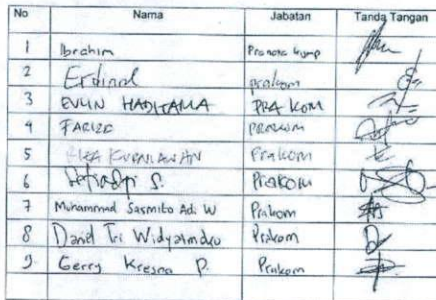 No Nama Jabatan Tanda Tangan
1 Ibrahim Pranata komp
2 Erdinal prakom
3 EVLIN HADITAMA PRA KOM
4 FARIZD PRAKOM
5 KURNIAWAN Prakom
6 S. PRAKOM
7 Muhammad Sasmito Adi W Prakom
8 Danid Tri Prakom
9. Gerry Kresna P. Prakom